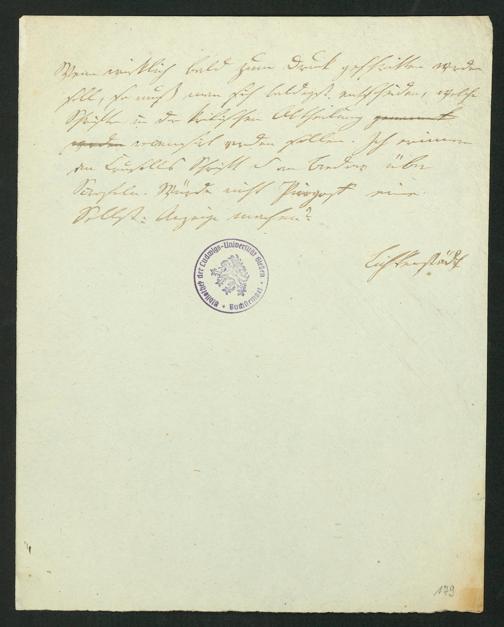 Wenn wirklich bald zum Druck geschritten werden
soll, so muß man sich baldigst entscheiden, welche
Schriften in der kritischen Abtheilung genannt
werden recensirt werden sollen. Ich erinnere
an Schrift
Würde nicht eine
Selbst-Anzeige machen?
Lichtenstädt
Bibliothek der Ludwigs-Universität Gießen
Buchstempel
179